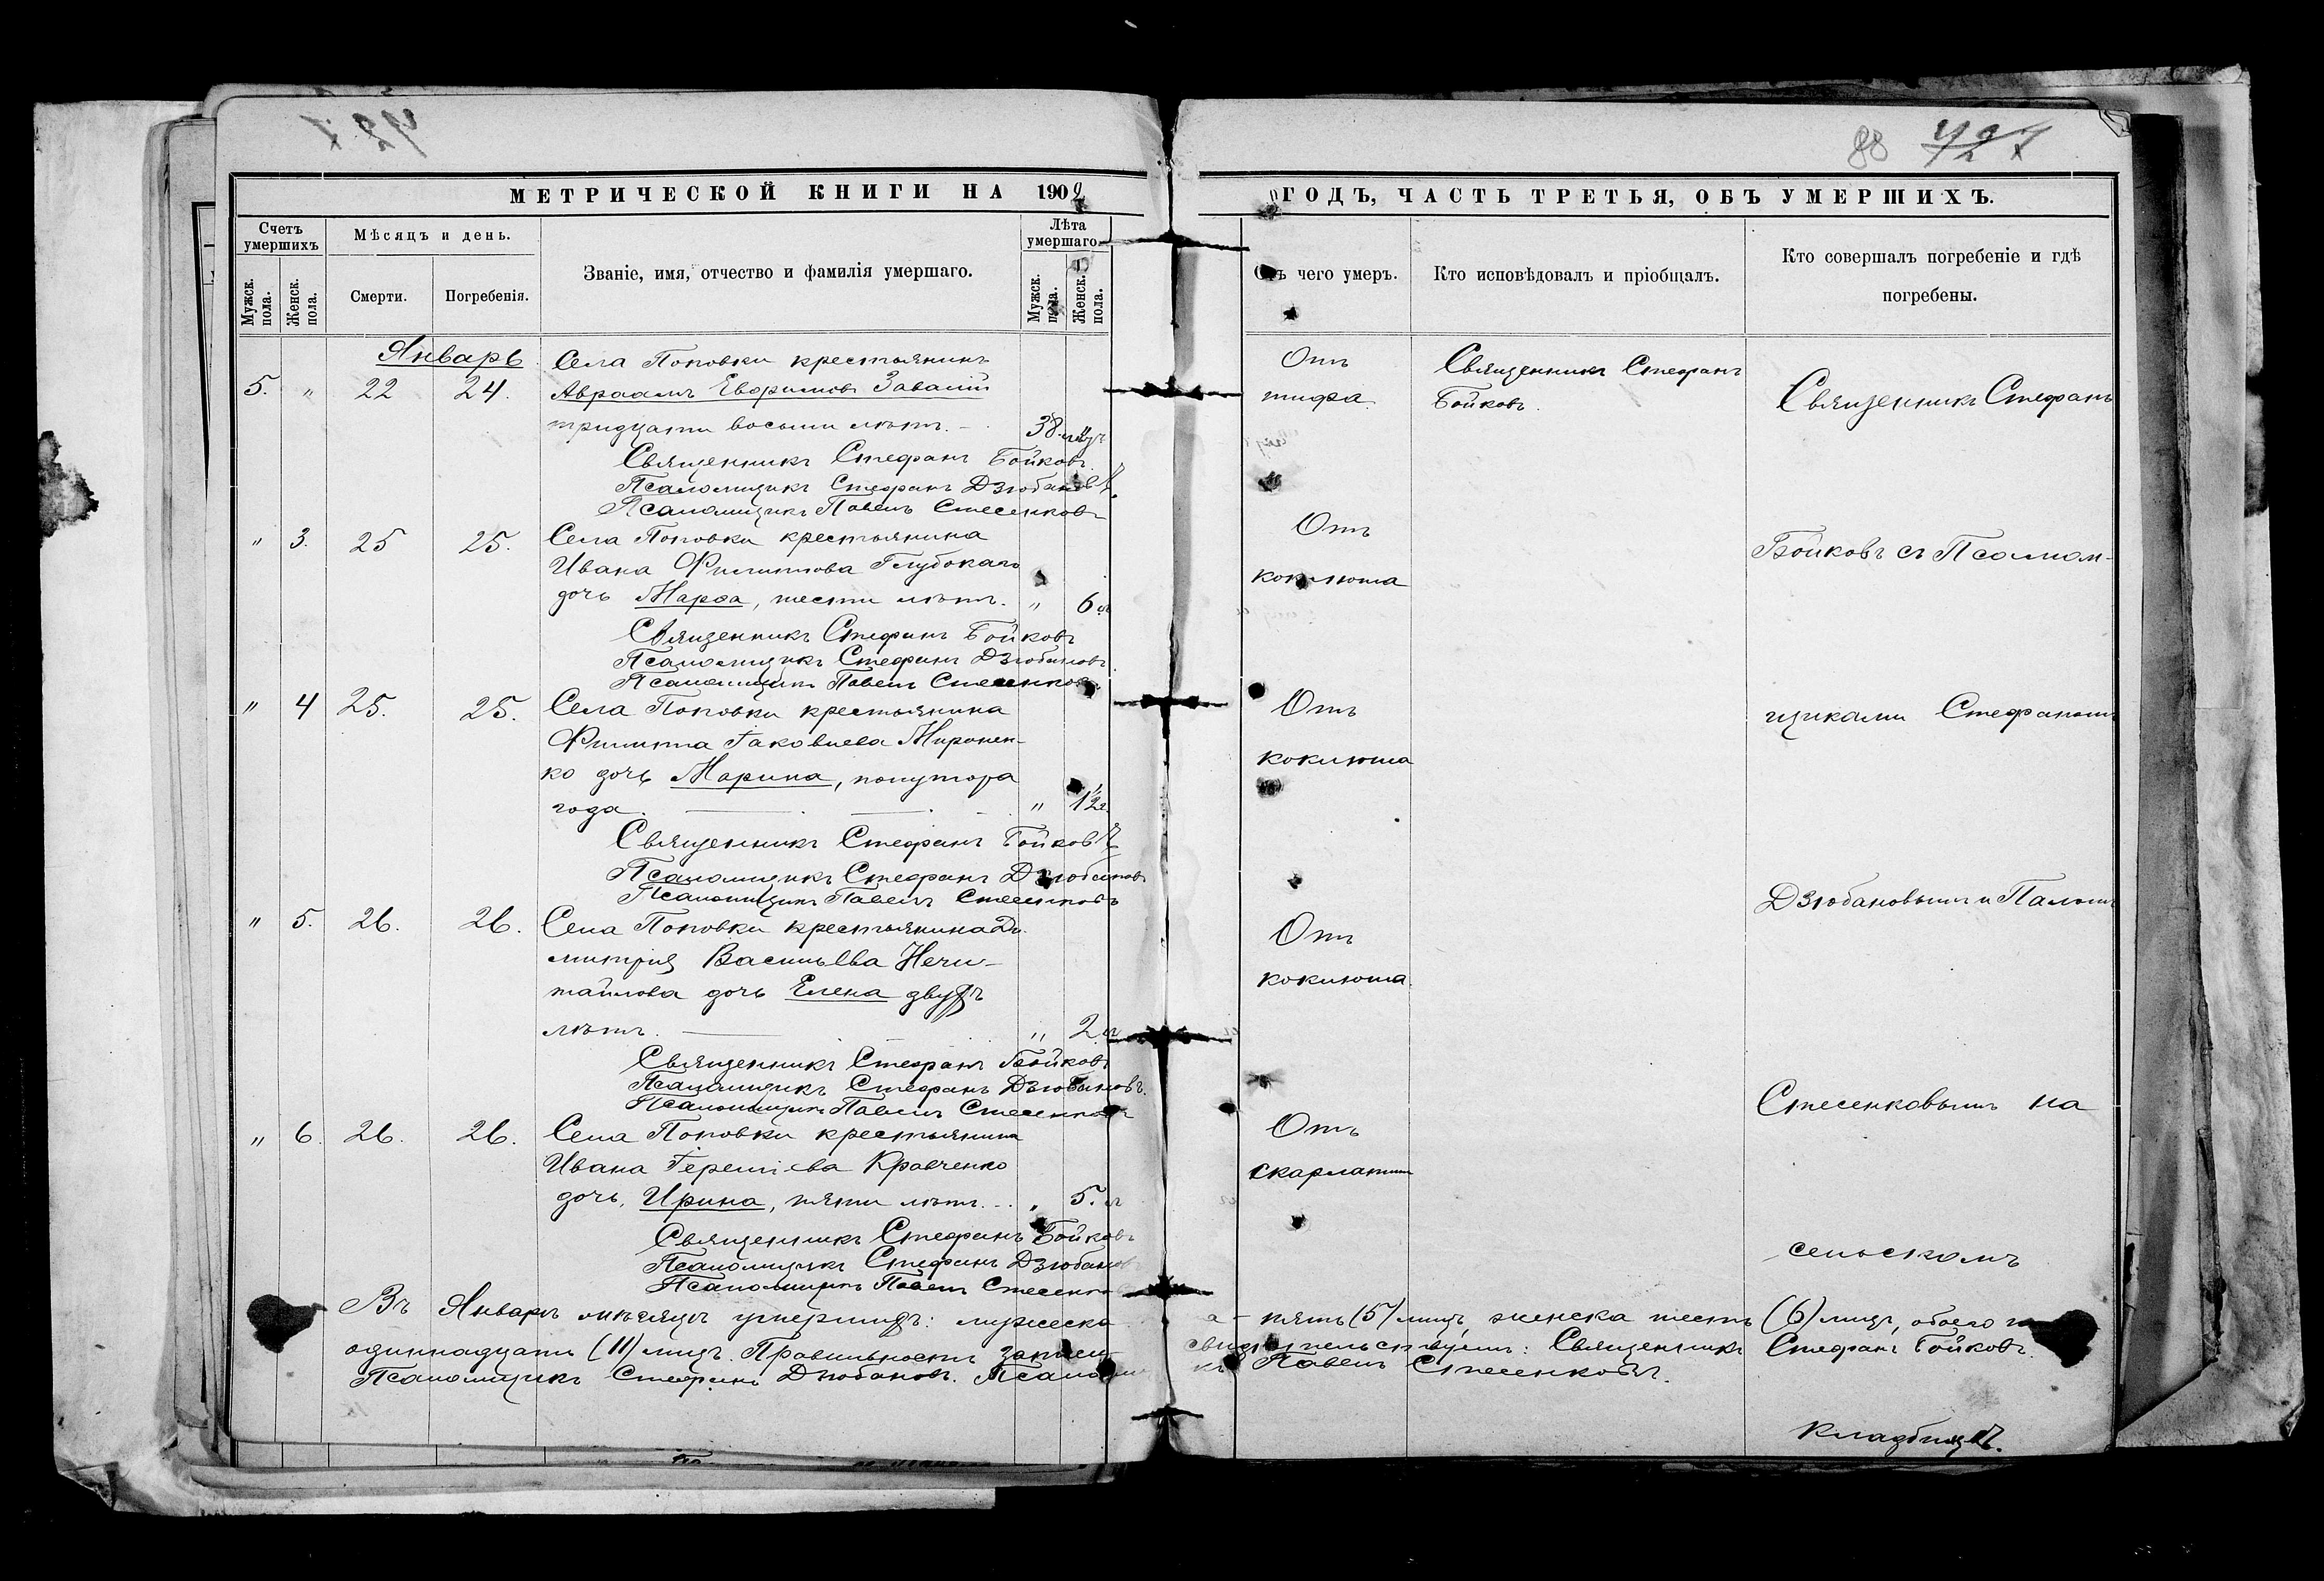 88 427
МЕТРИЧЕСКОЙ КНИГИ НА 1902
ГОДЪ, ЧАСТЬ ТРЕТЬЯ, ОБЪ УМЕРШИХЪ.
Счетъ умершихъ
Мѣсяцъ и день.
Званіе, имя, отчество и фамилія умершаго.
Лѣта умершаго
Мужск. пола.
Женск. пола.
Смерти.
Погребенія.
Мужск. пола.
Женск. пола.
Отъ чего умеръ.
Кто исповѣдовалъ и пріобщалъ.
Кто совершалъ погребеніе и гдѣ
погребены.
Январь
5. " 22 24.
Села Поповки крестьянинъ
Авраамъ Евфимовъ Завалій
тридцати восьми лѣтъ. 38
Священникъ Стефанъ Бойковъ
Псаломщикъ Стефанъ Дзюбановъ.
Псаломщикъ Павелъ Стесенковъ
Отъ
тифа.
Священникъ Стефанъ
Бойковъ.
" 3. 25 25.
Села Поповки крестьянина
Ивана Филиппова Глубокаго
дочь Марѳа, шести лѣтъ. " 6 л
Священникъ Стефанъ Бойковъ
Псаломщикъ Стефанъ Дзюбановъ.
Псаломщикъ Павелъ Стесенковъ.
Отъ
коклюша
" 4 25. 25.
Села Поповки крестьянина
Филиппа Іаковлева Миронен-
ко дочь Марина, полутора
года. " 1½
Священникъ Стефанъ Бойковъ
Псаломщикъ Стефанъ Дзюбановъ
Псаломщикъ Павелъ Стесенковъ
Отъ
коклюша
" 5. 26. 26.
Села Поповки крестьянина Ди-
митрія Васильева Нечи-
тайлова дочь Елена двухъ
лѣтъ. " 2 л
Священникъ Стефанъ Бойковъ
Псаломщикъ Стефанъ Дзюбановъ.
Псаломщикъ Павелъ Стесенковъ
Отъ
коклюша.
" 6. 26. 26.
Села Поповки крестьянина
Ивана Кравченко
дочь, Ирина, пяти лѣтъ. " 5. л
Священникъ Стефанъ Бойковъ
Псаломщикъ Стефанъ Дзюбановъ
Псаломщикъ Павелъ Стесенко
Отъ
скарлатины
Священникъ Стефанъ
Бойковъ съ Псалом-
щиками Стефаномъ
Дзюбановымъ и Павломъ
Стесенковымъ на
сельскомъ
кладбищѣ.
Въ Январѣ мѣсяцѣ умершихъ: мужеска - пять (5) лицъ, женска шесть (6) лицъ, обоего
одиннадцати (11) лицъ. Правильность записи свидѣтельствуемъ: Священникъ Стефанъ Бойковъ.
Псаломщикъ Стефанъ Дзюбановъ. Псаломщикъ Павелъ Стесенковъ.